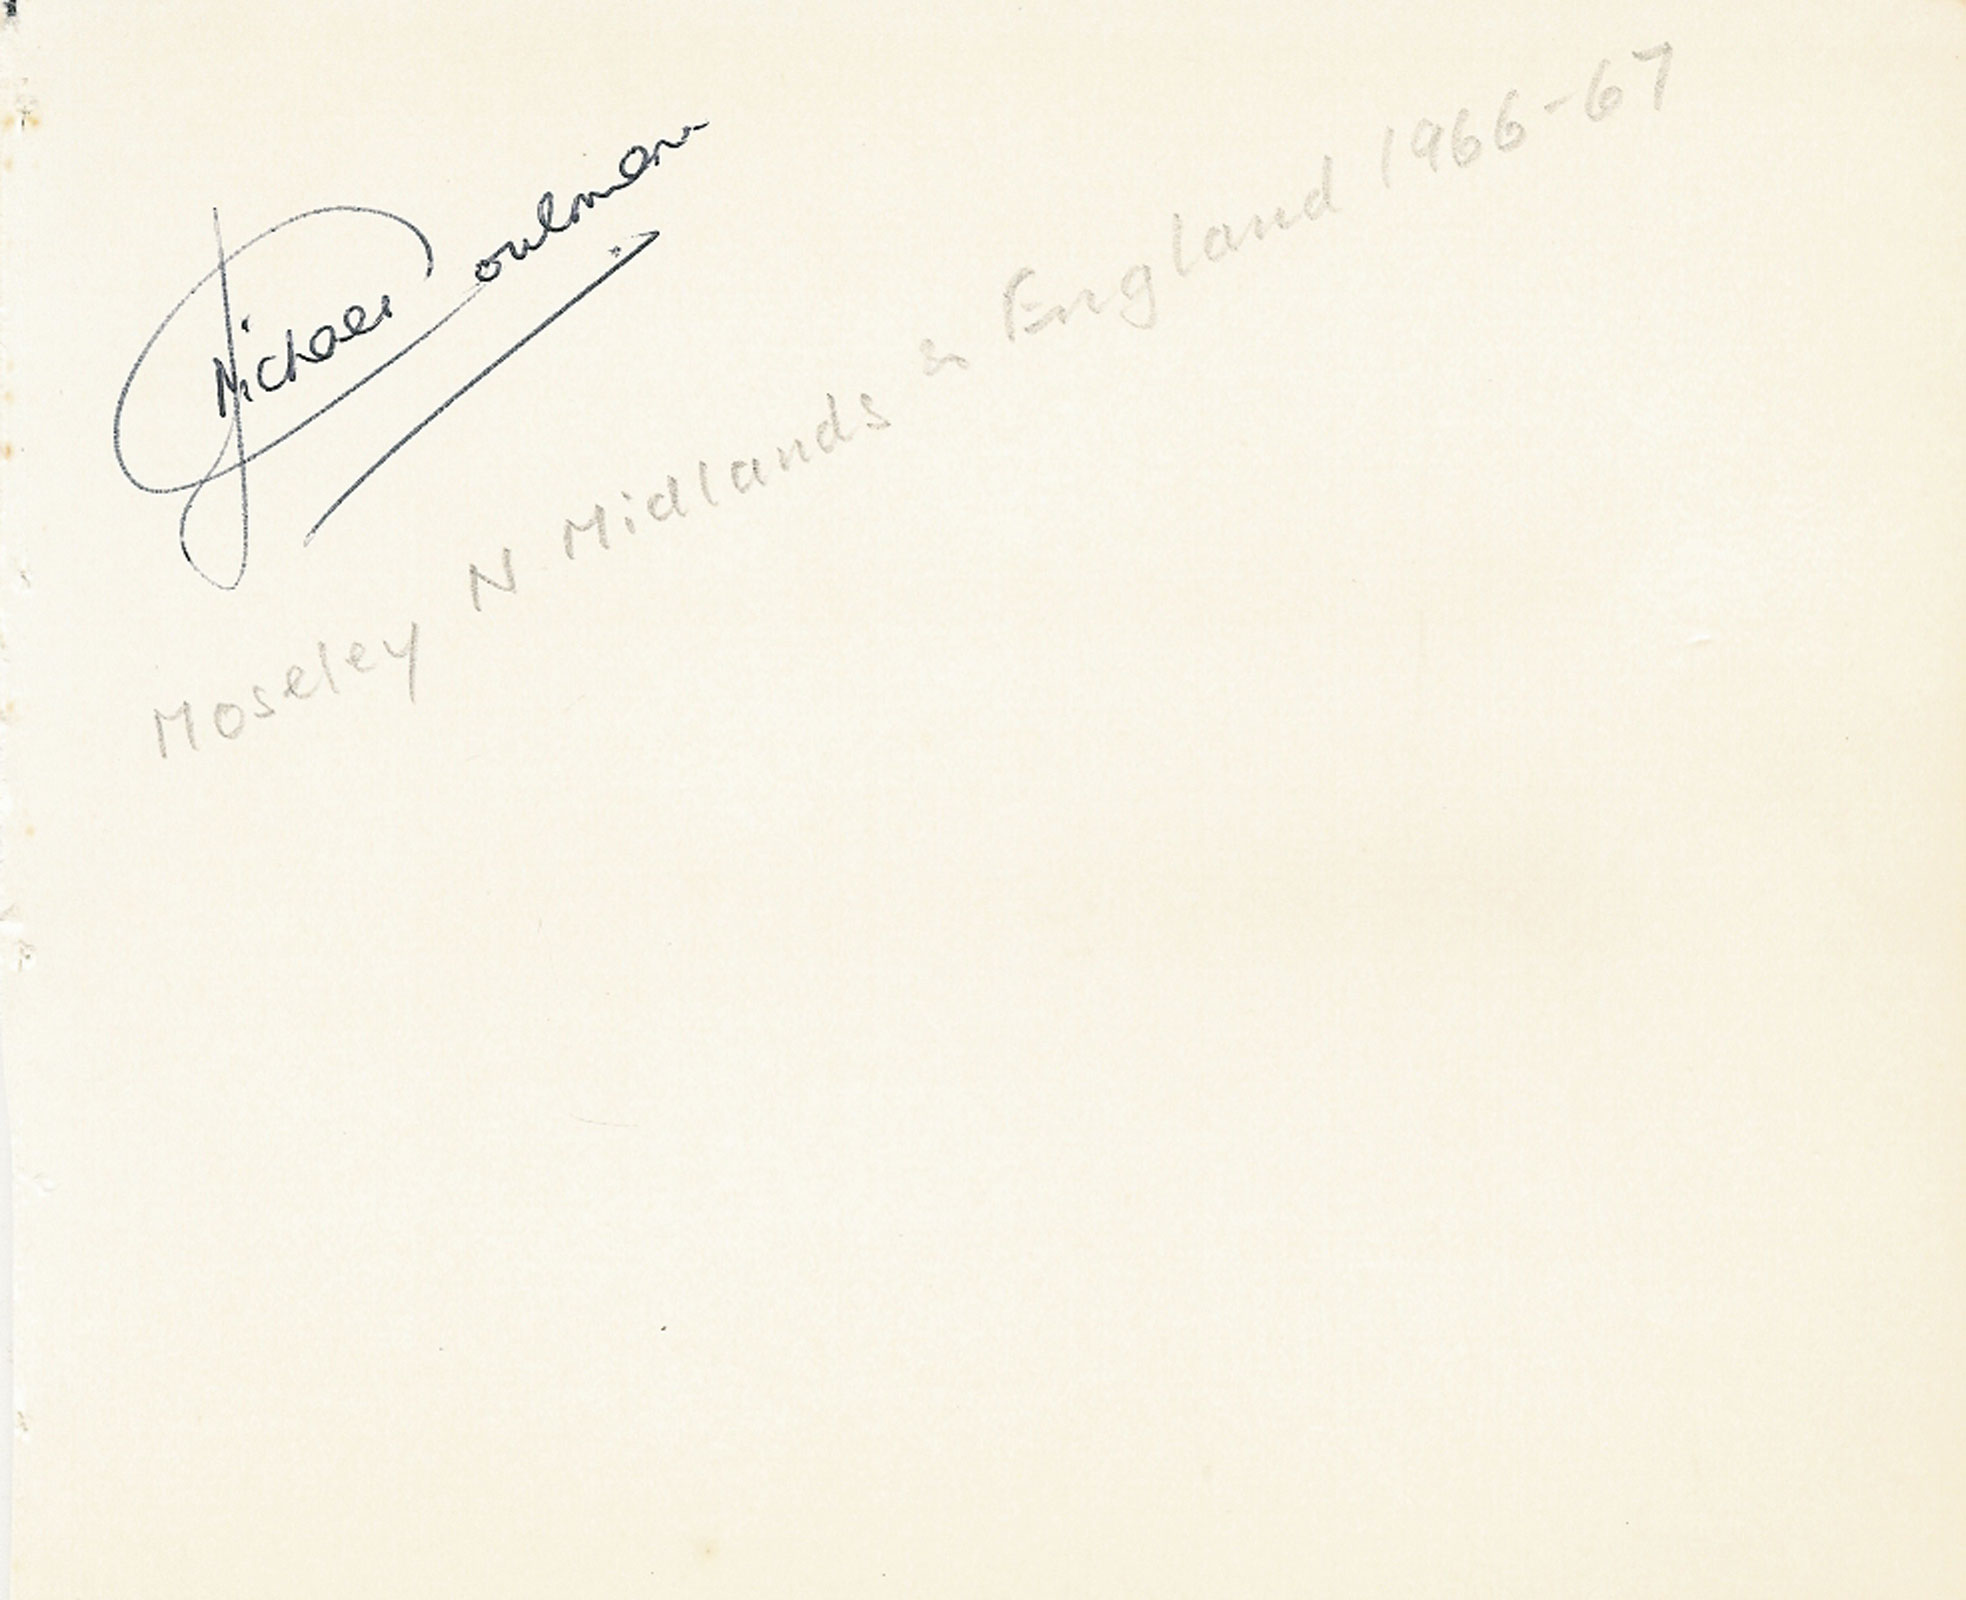 Michael Coulman
Moseley N. Midlands & England 1966-67